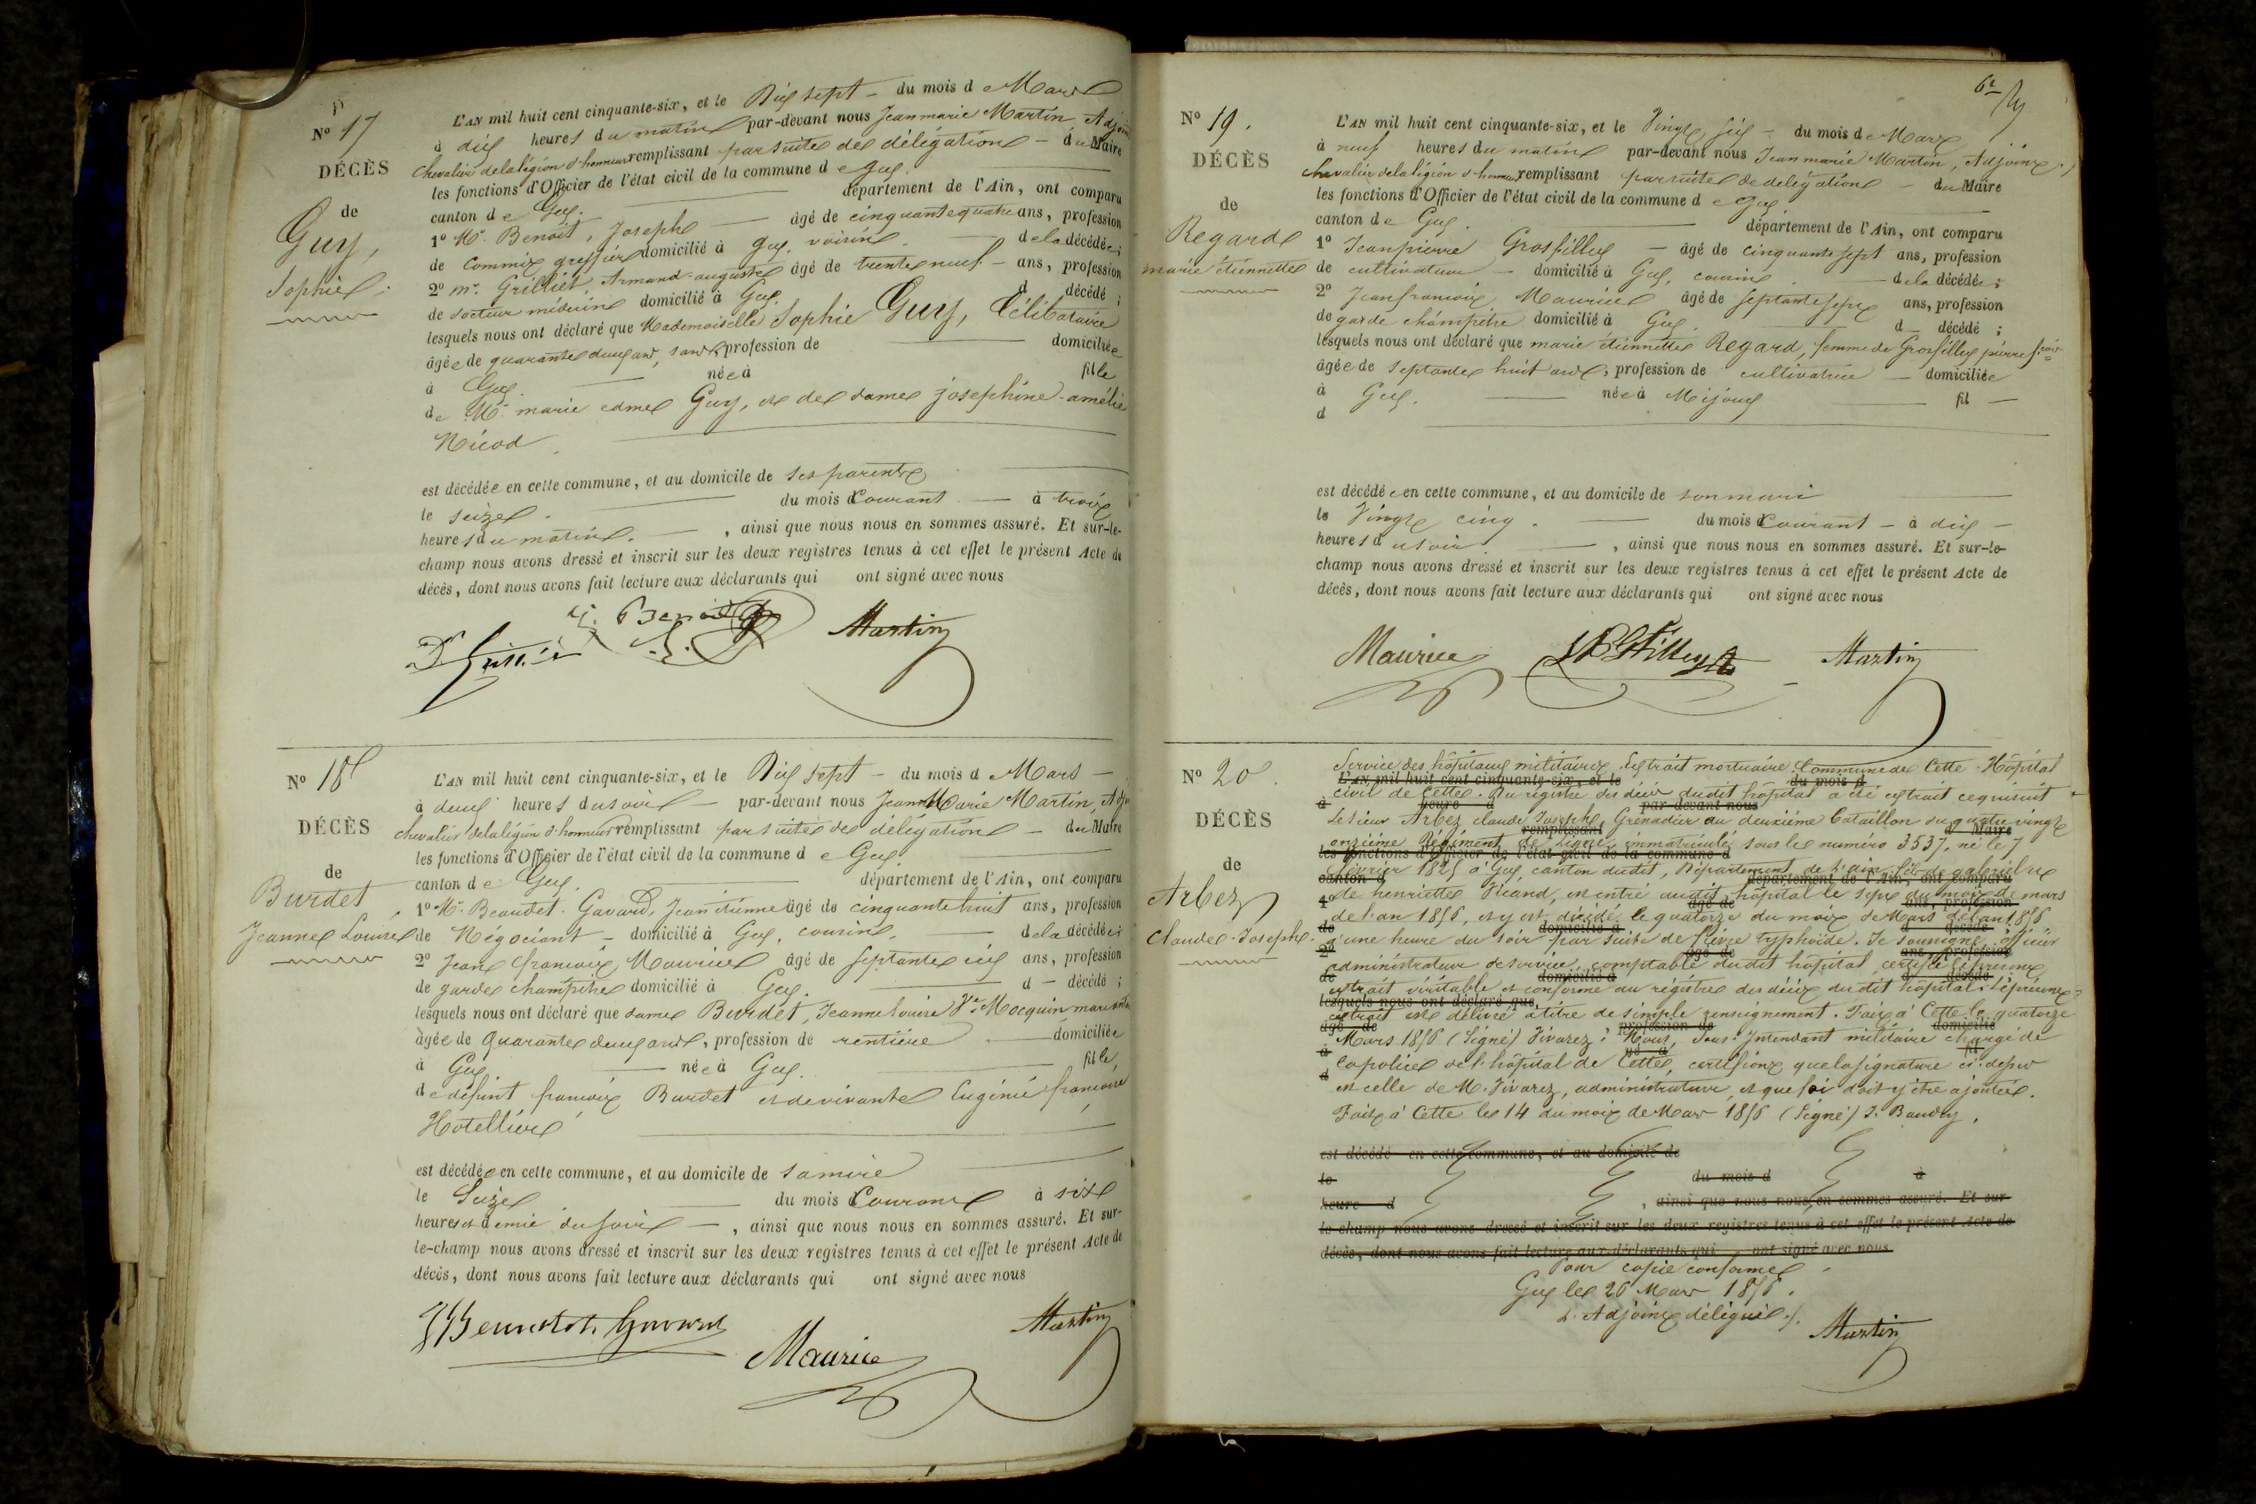 Nº 17
DÉCÈS
de
Guy,
Sophie.
L'AN mil huit cent cinquante-six, et le Dix sept - du mois de Mars
à dix heures du matin par-devant nous Jean marie Martin, Adjoint
chevalier de la légion d'honneur remplissant par suite de délégation - du Maire
les fonctions d'Officier de l'état civil de la commune de Gex.
canton de Gex. département de l'Ain, ont comparu
1º Mr. Benoit, Joseph âgé de cinquante quatre ans, profession
de commis greffier domicilié à Gex, voisin. de la décédée;
2º mr. Grilliet, Armand-auguste âgé de trente neuf - ans, profession
de docteur médecin domicilié à Gex. d décédé ;
lesquels nous ont déclaré que Mademoiselle Sophie Guy, Célibataire
âgée de quarante deux ans, sans profession de domiciliée
à Gex. née à fille
de Mr. marie edme Guy, et de dame joséphine-amélie
Nicod.
est décédée en cette commune, et au domicile de ses parents
le seize. du mois Courant - à trois
heures du matin. , ainsi que nous nous en sommes assuré. Et sur-le-
champ nous avons dressé et inscrit sur les deux registres tenus à cet effet le présent Acte de
décès, dont nous avons fait lecture aux déclarants qui ont signé avec nous
J. Benoit Martin
Dr Grilliet
Nº 18
DÉCÈS
de
Burdet,
Jeanne Louise
L'AN mil huit cent cinquante-six, et le Dix sept - du mois de Mars -
à deux heures du soir - par-devant nous Jean Marie Martin, Adjt
chevalier de la légion d'honneur remplissant par suite de délégation - du Maire
les fonctions d'Officier de l'état civil de la commune de Gex.
canton de Gex. département de l'Ain, ont comparu
1º Mr. Beaudet-Gavard, Jean étienne âgé de cinquante huit ans, profession
de Négociant - domicilié à Gex, cousin. de la décédée;
2º Jean françois Maurice âgé de septante six ans, profession
de garde champêtre domicilié à Gex. d - décédé ;
lesquels nous ont déclaré que dame Burdet, Jeanne louise Ve. Mocquin
âgée de Quarante deux ans, profession de rentière domiciliée
à Gex née à Gex. fille
de défunt françois Burdet et de vivante Eugénie françoise
Hotellier
est décédée en cette commune, et au domicile de sa mère
le Seize du mois Courant à six
heures et demie du soir - , ainsi que nous nous en sommes assuré. Et sur-
le-champ nous avons dressé et inscrit sur les deux registres tenus à cet effet le présent Acte de
décès, dont nous avons fait lecture aux déclarants qui ont signé avec nous
Beaudet Gavard Martin
Maurice
Nº 19.
DÉCÈS
de
Regard
marie étiennette
L'AN mil huit cent cinquante-six, et le Vingt six - du mois de Mars
à neuf heures du matin par-devant nous Jean marie Martin, Adjoint
chevalier de la légion d'honneur remplissant par suite de délégation - du Maire
les fonctions d'Officier de l'état civil de la commune de Gex
canton de Gex. département de l'Ain, ont comparu
1º Jean pierre Grosfilley - âgé de cinquante sept ans, profession
de cultivateur - domicilié à Gex, cousin de la décédée;
2º Jean françois Maurice âgé de septante six ans, profession
de garde champêtre domicilié à Gex. d décédé ;
lesquels nous ont déclaré que marie étiennette Regard, femme de Grosfilley pierre
âgée de septante huit ans, profession de cultivatrice - domiciliée
à Gex. née à Mijoux fil -
d
est décédée en cette commune, et au domicile de son mari
le Vingt cinq. du mois Courant - à dix -
heures du soir. , ainsi que nous nous en sommes assuré. Et sur-le-
champ nous avons dressé et inscrit sur les deux registres tenus à cet effet le présent Acte de
décès, dont nous avons fait lecture aux déclarants qui ont signé avec nous
Maurice Martin
Nº 20.
DÉCÈS
de
Arbez
Claude-Joseph.
Service des hôpitaux militaires. Extrait mortuaire. Commune de Cette. Hôpital
civil de Cette. Du registre des décès dudit hôpital a été extrait ce qui suit
Le sieur Arbez claude Joseph, Grenadier au deuxième bataillon du quatre vingt
onzième Régiment de ligne, immatriculé sous le numéro 3537, né le 7
février 1825 à Gex, canton dudit, Département de l'Ain, fils de gabriel et
de henriette Vicand, est entré audit hôpital le sept du mois de mars
de l'an 1856, et y est décédé le quatorze du mois de Mars de l'an 1856
à une heure du soir par suite de fièvre typhoïde. Je soussigné officier
administrateur de service, comptable dudit hôpital, certifie le présent
extrait véritable et conforme au registre des décès dudit hôpital. Le présent
extrait est délivré à titre de simple renseignement. Fait à Cette le quatorze
Mars 1856 (Signé) Vivarez. Nous, Sous-Intendant militaire chargé de
la police de l'hôpital de Cette, certifions que la signature ci-dessus
est celle de M. Vivarez, administrateur, et que foi doit y être ajoutée.
Fait à Cette le 14 du mois de Mars 1856 (Signé) J. Baudry.
est décédé en cette commune, et au domicile de
le du mois d à
heure d , ainsi que nous nous en sommes assuré. Et sur
le champ nous avons dressé et inscrit sur les deux registres tenus à cet effet le présent Acte de
décès, dont nous avons fait lecture aux déclarants qui ont signé avec nous
Pour copie conforme
Gex le 26 Mars 1856.
L'Adjoint délégué.
Martin